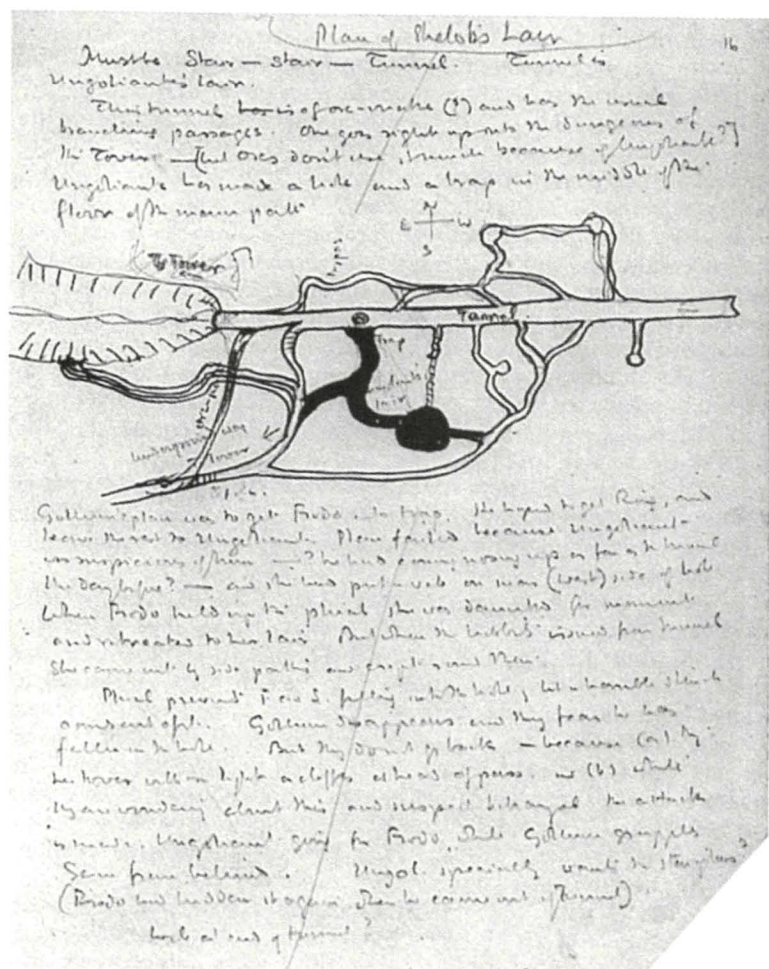 Plan of Shelob's Lair
16
Must be Stair — stair — Tunnel. Tunnel is
Ungoliant's lair.
This tunnel is of orc-make (?) and has the usual
branching passages. One goes right up into the dungeons of
the Tower — but orcs don't use it much because of Ungoliant
Ungoliant has made a hole and a trap in the middle of the
floor of the main path
N
E W
S
To Tower
bypass
Tunnel
Trap
Ungoliant's
lair
orc path
Underground way
Tower
Gollum's plan was to get Frodo into trap. He hoped to get Ring, and
leave the rest to Ungoliant. Plan failed because Ungoliant
was suspicious of him — ? he had come nosing up as far as the tunnel
the day before? — and she had put a web on near (west) side of hole
When Frodo held up the phial she was daunted for moment
and retreated to her lair. But when the hobbits issued from tunnel
she came out by side paths and crept round them.
Phial prevented F. and S. falling into the hole, but a horrible stench
comes out of it. Gollum disappears and they fear he has
fallen in the hole. But they don't go back — because (a) they
see Tower with a light on cliffs at head of pass, and (b) while
they are wondering about this and suspect betrayal the attack
is made, Ungoliant going for Frodo, while Gollum grapples
Sam from behind. Ungol. specially wants the
(Frodo had hidden it again when he came out of tunnel)
hole at end of tunnel?